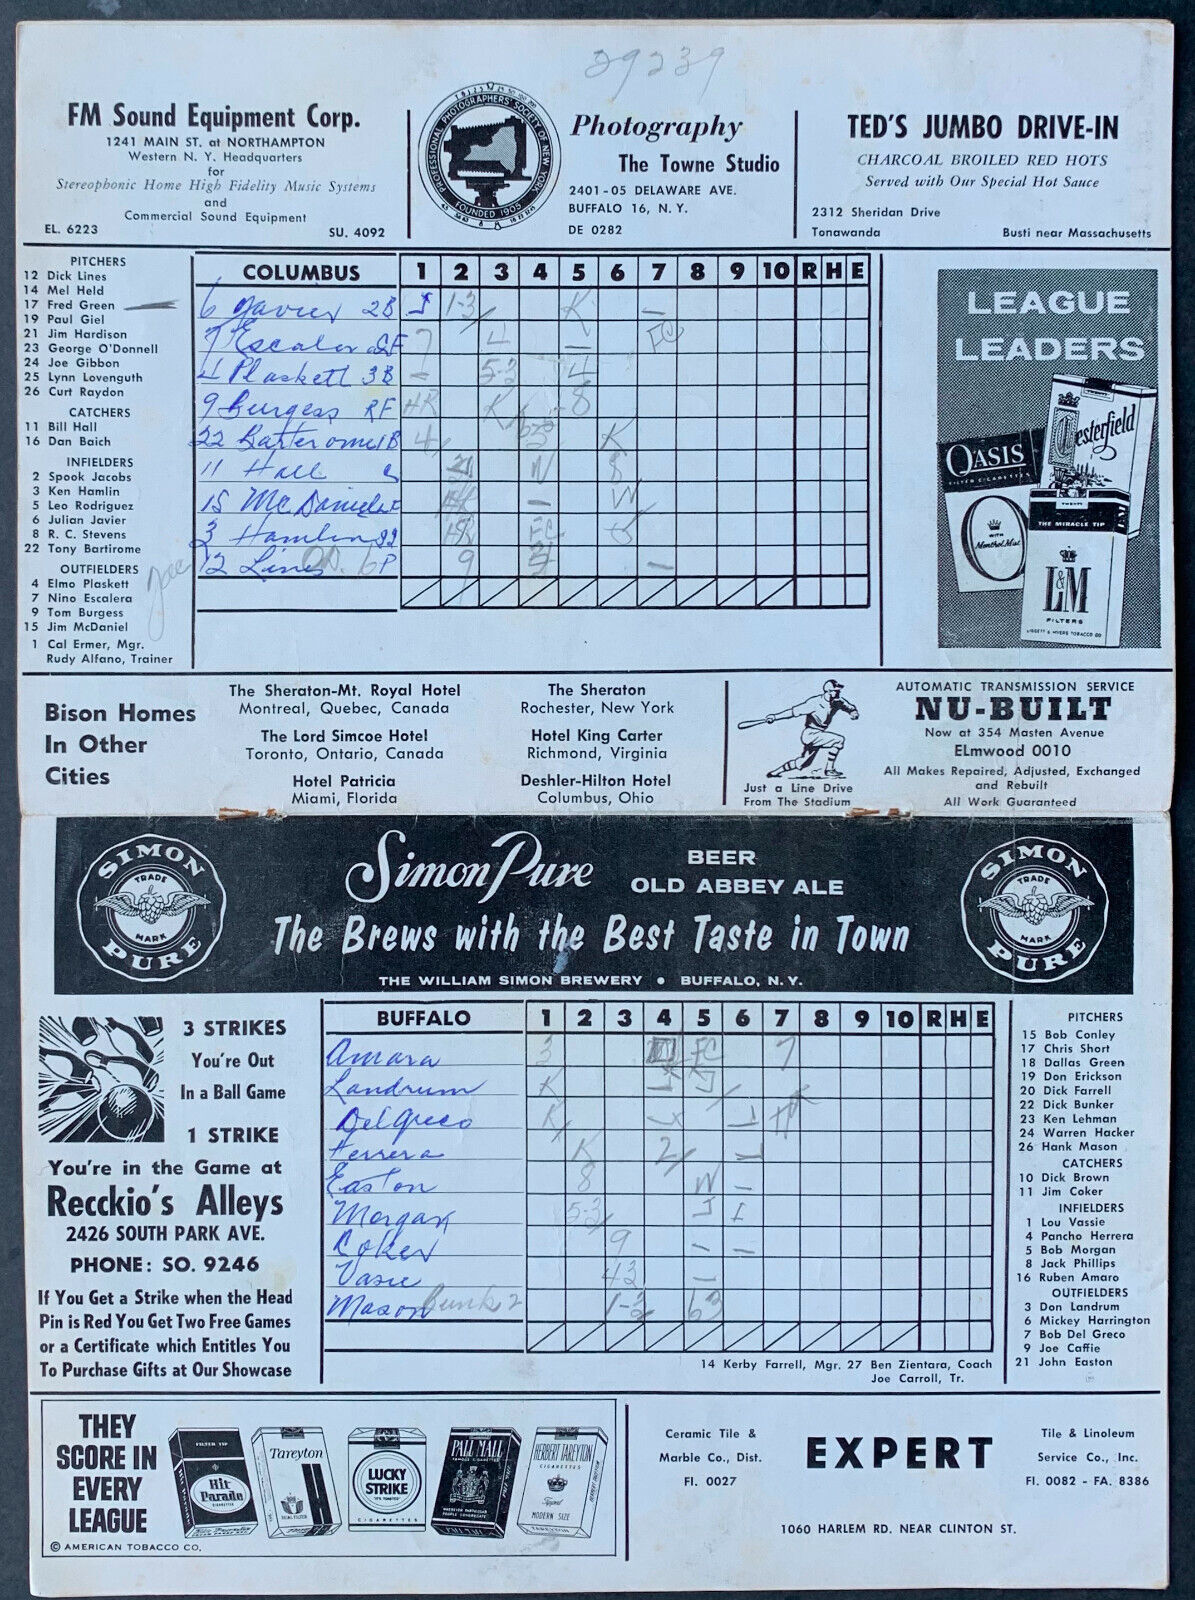 29239
FM Sound Equipment Corp.
1241 MAIN ST. at NORTHAMPTON
Western N. Y. Headquarters
for
Stereophonic Home High Fidelity Music Systems
and
Commercial Sound Equipment
EL. 6223 SU. 4092
PROFESSIONAL PHOTOGRAPHERS' SOCIETY OF NEW YORK
FOUNDED 1905
Photography
The Towne Studio
2401-05 DELAWARE AVE.
BUFFALO 16, N. Y.
DE 0282
TED'S JUMBO DRIVE-IN
CHARCOAL BROILED RED HOTS
Served with Our Special Hot Sauce
2312 Sheridan Drive
Tonawanda Busti near Massachusetts
PITCHERS
12 Dick Lines
14 Mel Held
17 Fred Green
19 Paul Giel
21 Jim Hardison
23 George O'Donnell
24 Joe Gibbon
25 Lynn Lovenguth
26 Curt Raydon
CATCHERS
11 Bill Hall
16 Dan Baich
INFIELDERS
2 Spook Jacobs
3 Ken Hamlin
5 Leo Rodriguez
6 Julian Javier
8 R. C. Stevens
22 Tony Bartirome
OUTFIELDERS
4 Elmo Plaskett
7 Nino Escalera
9 Tom Burgess
15 Jim McDaniel
1 Cal Ermer, Mgr.
Rudy Alfano, Trainer
COLUMBUS 1 2 3 4 5 6 7 8 9 10 R H E
6 Javier 2B 1-3 K —
7 Escaler FC
4 Plaskett 3B 5-3 4
9 Burgess RF HR K 8
22 Bartirome 1B 4 K
11 Hall W 8
15 McDaniel HR — W
3 Hamlin SS HR FC 6
12 Lines P 9 —
LEAGUE
LEADERS
OASIS
FILTER CIGARETTES
WITH
Menthol Mist
Chesterfield
THE MIRACLE TIP
L&M
FILTERS
LIGGETT & MYERS TOBACCO CO
Bison Homes
In Other
Cities
The Sheraton-Mt. Royal Hotel
Montreal, Quebec, Canada
The Lord Simcoe Hotel
Toronto, Ontario, Canada
Hotel Patricia
Miami, Florida
The Sheraton
Rochester, New York
Hotel King Carter
Richmond, Virginia
Deshler-Hilton Hotel
Columbus, Ohio
Just a Line Drive
From The Stadium
AUTOMATIC TRANSMISSION SERVICE
NU-BUILT
Now at 354 Masten Avenue
ELmwood 0010
All Makes Repaired, Adjusted, Exchanged
and Rebuilt
All Work Guaranteed
SIMON
TRADE
MARK
PURE
Simon Pure BEER
OLD ABBEY ALE
The Brews with the Best Taste in Town
THE WILLIAM SIMON BREWERY • BUFFALO, N. Y.
SIMON
TRADE
MARK
PURE
3 STRIKES
You're Out
In a Ball Game
1 STRIKE
You're in the Game at
Recckio's Alleys
2426 SOUTH PARK AVE.
PHONE: SO. 9246
If You Get a Strike when the Head
Pin is Red You Get Two Free Games
or a Certificate which Entitles You
To Purchase Gifts at Our Showcase
BUFFALO 1 2 3 4 5 6 7 8 9 10 R H E
Amara 3 FC 7
Landrum K
Del Greco K
Herrera K 2
Easton 8 W —
Morgan 5-3
Coker 9
Vasie 43
Mason 1-3 63
14 Kerby Farrell, Mgr. 27 Ben Zientara, Coach
Joe Carroll, Tr.
PITCHERS
15 Bob Conley
17 Chris Short
18 Dallas Green
19 Don Erickson
20 Dick Farrell
22 Dick Bunker
23 Ken Lehman
24 Warren Hacker
26 Hank Mason
CATCHERS
10 Dick Brown
11 Jim Coker
INFIELDERS
1 Lou Vassie
4 Pancho Herrera
5 Bob Morgan
8 Jack Phillips
16 Ruben Amaro
OUTFIELDERS
3 Don Landrum
6 Mickey Harrington
7 Bob Del Greco
9 Joe Caffie
21 John Easton
THEY
SCORE IN
EVERY
LEAGUE
FILTER TIP
Hit Parade
Tareyton
DUAL FILTER
LUCKY
STRIKE
"IT'S TOASTED"
CIGARETTES
PALL MALL
FAMOUS CIGARETTES
HERBERT TAREYTON
CIGARETTES
MODERN SIZE
TAREYTON
© AMERICAN TOBACCO CO.
Ceramic Tile &
Marble Co., Dist.
FI. 0027
EXPERT
Tile & Linoleum
Service Co., Inc.
FI. 0082 - FA. 8386
1060 HARLEM RD. NEAR CLINTON ST.